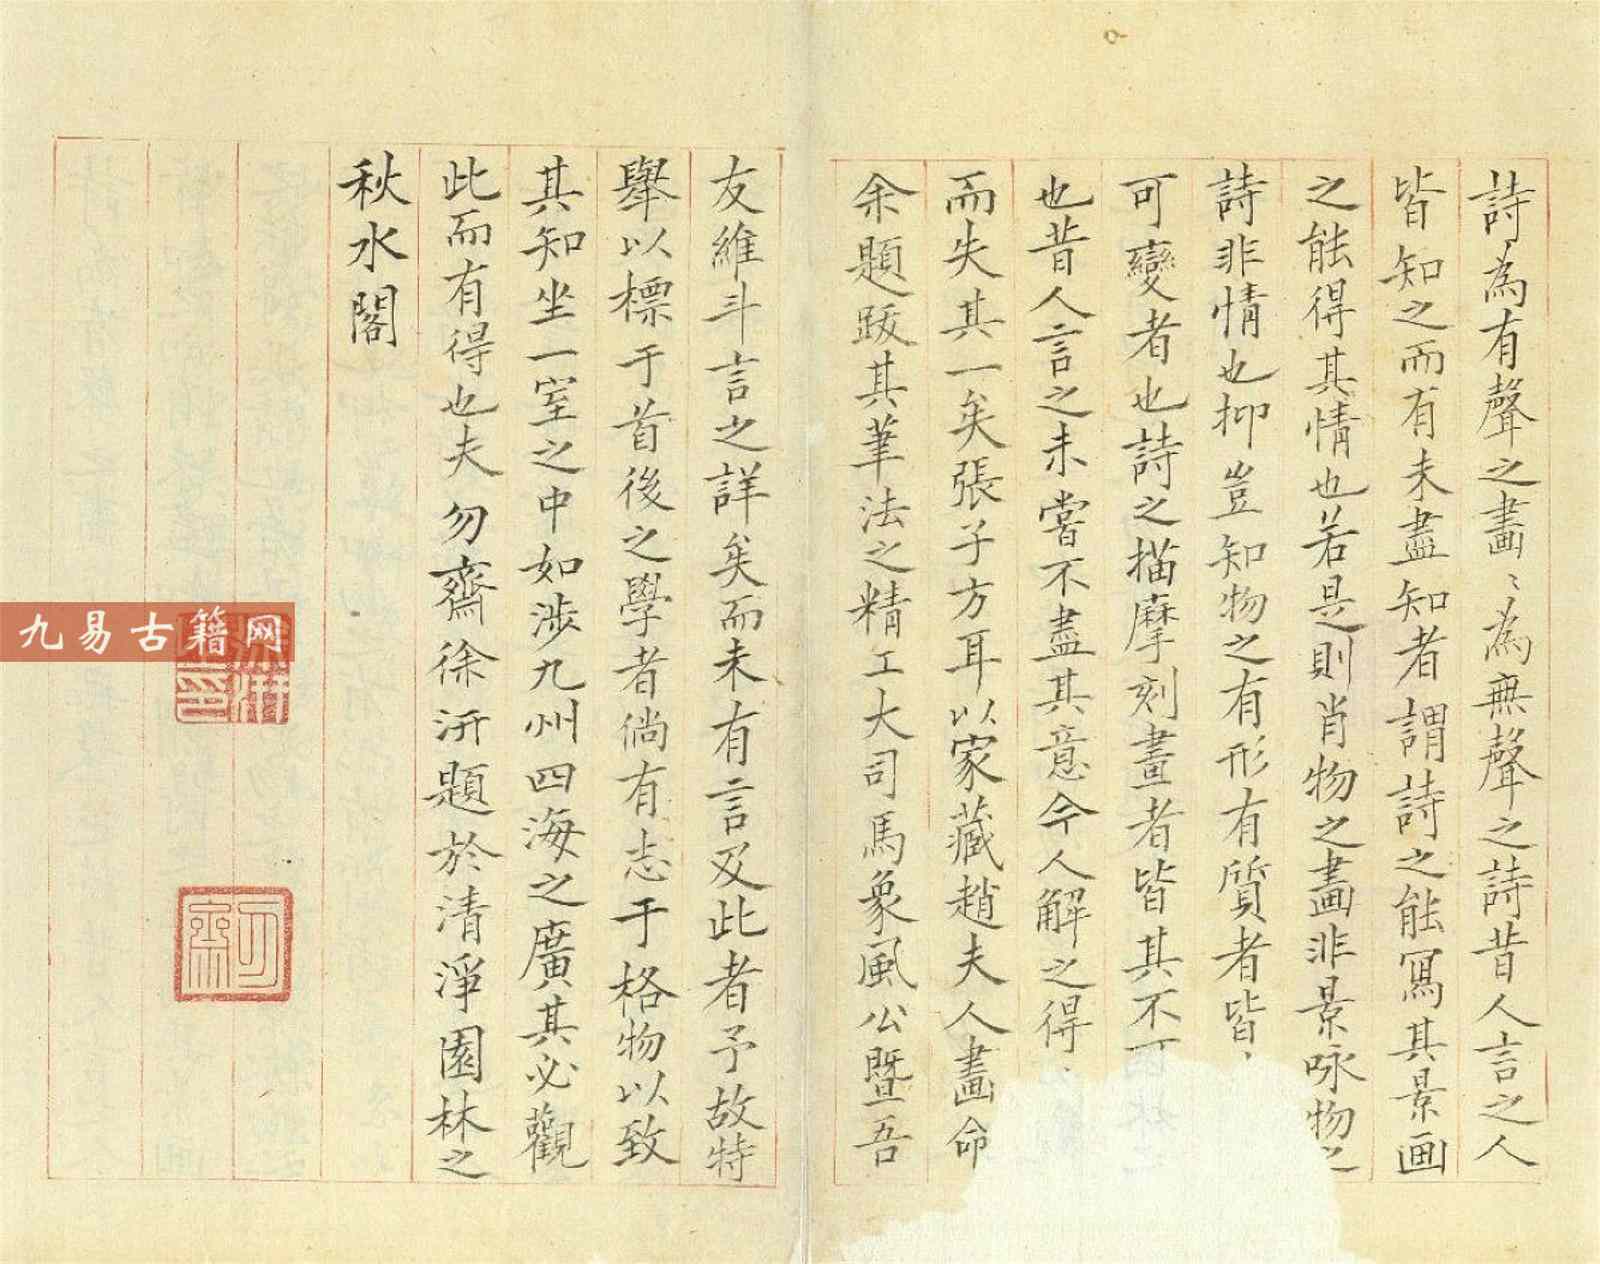 詩為有聲之畫〻為無聲之詩昔人言之人
皆知之而有未盡知者謂詩之能寫其景画
之能得其情也若是則肖物之畫非景咏物之
詩非情也抑豈知物之有形有質者皆
可變者也詩之描摩刻畫者皆其不可
也昔人言之未嘗不盡其意今人解之得
而失其一矣張子方耳以家藏趙夫人畫命
余題跋其筆法之精工大司馬象風公暨吾
友維斗言之詳矣而未有言及此者予故特
舉以標于首後之學者倘有志于格物以致
其知坐一室之中如涉九州四海之廣其必觀
此而有得也夫 勿齋徐汧題於清淨園林之
秋水閣
九易古籍网
勿齋